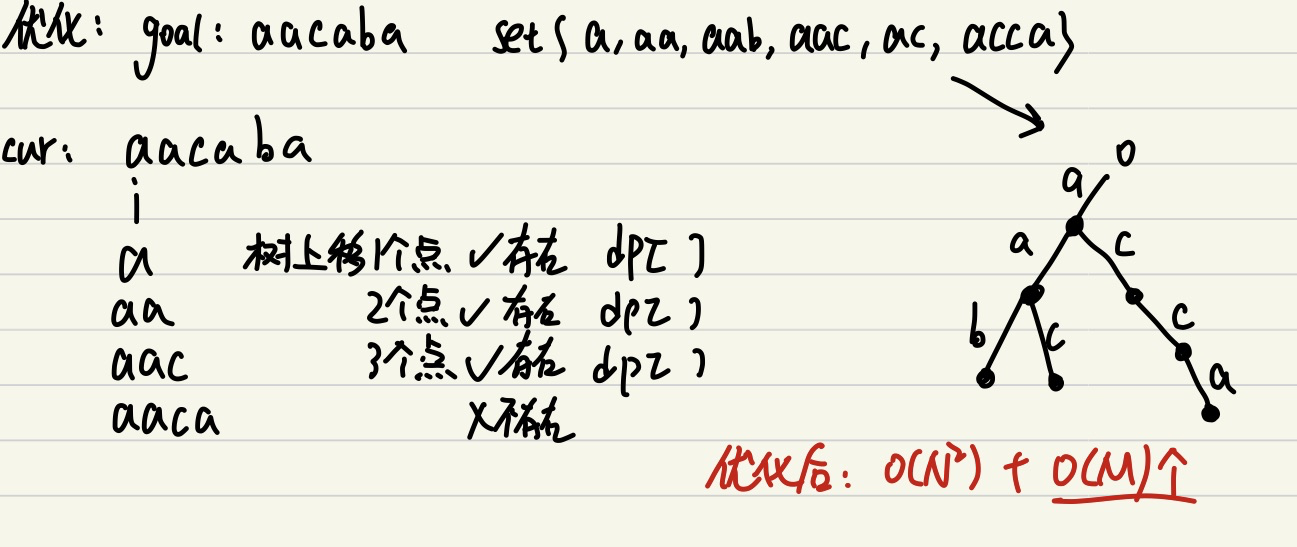 优化: goal: aacaba set{ a, aa, aab, aac, ac, acca}
cur: aacaba
i
a 树上移1个点 ✓存在 dp[ ]
aa 2个点 ✓存在 dp[ ]
aac 3个点 ✓存在 dp[ ]
aaca X不存在
O
a
a c
b c c
a
优化后: O(N²) + O(M)个